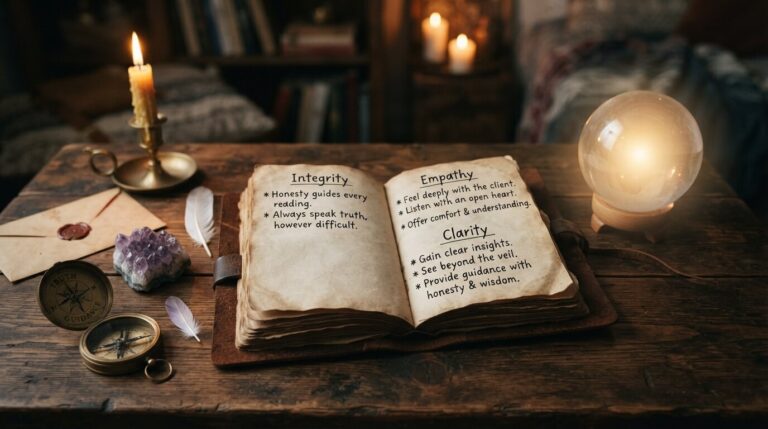 Integrity
* Honesty guides every
reading.
* Always speak truth,
however difficult.
Empathy
* Feel deeply with the client.
* Listen with an open heart.
* Offer comfort & understanding.
Clarity
* Gain clear insights.
* See beyond the veil.
* Provide guidance with
honesty & wisdom.